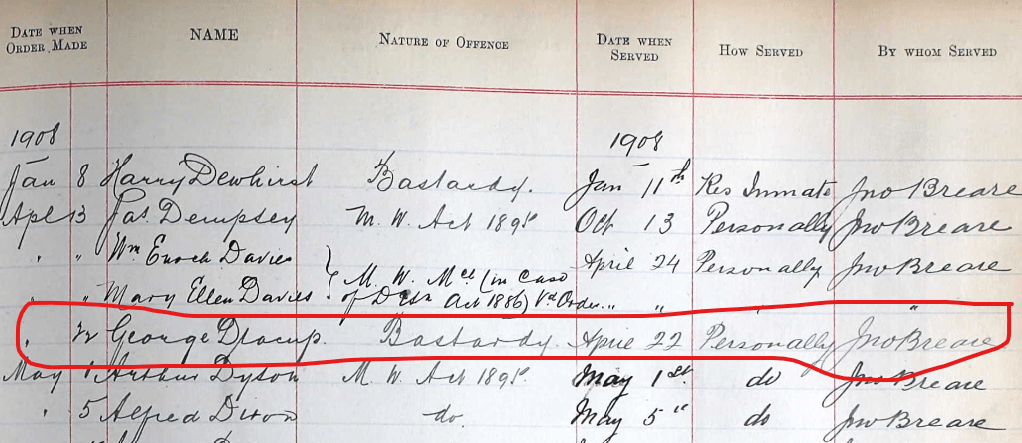 DATE WHEN ORDER MADE NAME NATURE OF OFFENCE DATE WHEN SERVED HOW SERVED BY WHOM SERVED
1908 1908
Jan 8 Harry Dewhirst Bastardy. Jan 11th Res Inmate Jno Breare
Apl 13 Jas. Dempsey M. W. Act 1895 Oct 13 Personally Jno Breare
" " Wm Enoch Davies April 24 Personally Jno Breare
" " Mary Ellen Davies } M. W. (in Case of Act 1886) Order " " " "
" George Dracup. Bastardy. April 22 Personally Jno Breare
May 1 Arthur Dyson M. W. Act 1895. May 1st. do Jno Breare
" 5 Alfred Dixon do. May 5th do Jno Breare